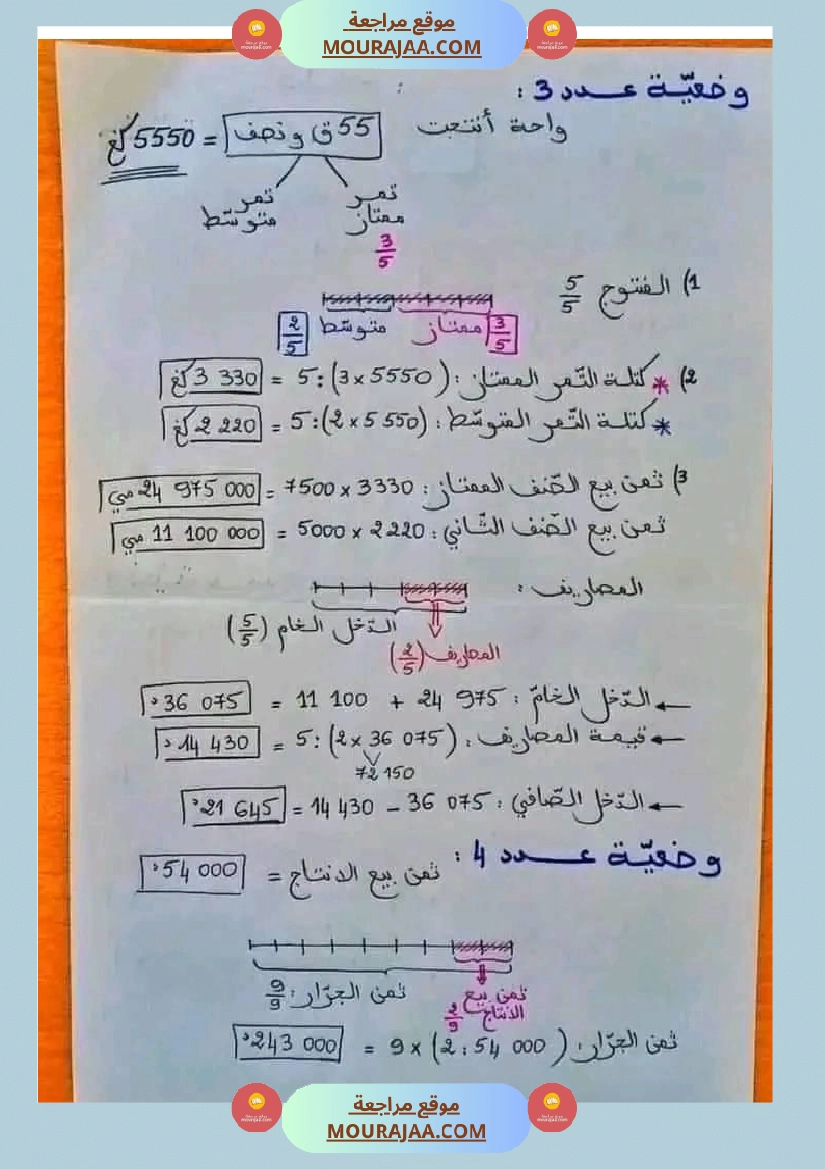 موقع مراجعة
MOURAJAA.COM
وضعيّة عدد 3 :
واحة أنتجت 55 ق ونصف = 5550 كغ
تمر ممتاز 3/5
تمر متوسّط
1) المنتوج 5/5
3/5 ممتاز متوسّط 2/5
2) * كتلة التّمر الممتاز : (5550 × 3) : 5 = 3 330 كغ
* كتلة التّمر المتوسّط : (5 550 × 2) : 5 = 2 220 كغ
3) ثمن بيع الصّنف الممتاز : 3330 × 7500 = 24 975 000 مي
ثمن بيع الصّنف الثّاني : 2220 × 5000 = 11 100 000 مي
المصاريف :
الدّخل الخام (5/5)
المصاريف (2/5)
← الدّخل الخامّ : 24 975 + 11 100 = 36 075 د
← قيمة المصاريف : (36 075 × 2) : 5 = 14 430 د
72 150
← الدّخل الصّافي : 36 075 – 14 430 = 21 645 د
وضعيّة عدد 4 :
ثمن بيع الانتاج = 54 000 د
ثمن بيع الانتاج 2/9
ثمن الجرّار : 9/9
ثمن الجرّار : (54 000 : 2) × 9 = 243 000 د
موقع مراجعة
MOURAJAA.COM